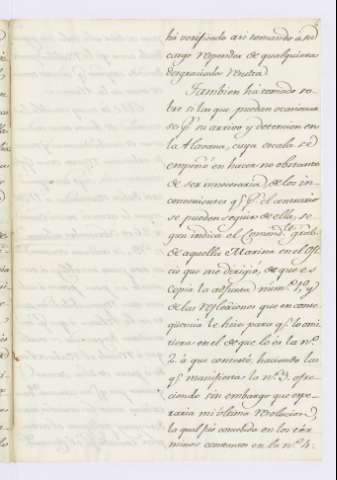 ha verificado asi tomando a su
cargo responder de qualquiera
desgraciada resulta.
Tambien ha tomado so-
bre si las que puedan ocasionar-
se pr. su arrivo y detencion en
la Havana, cuya escala se
empeñó en hacer no obstante
de ser innecesaria, de los in-
convenientes qe. pr. el contrario
se pueden seguir de ella, se-
gun indica el Comandte. gral.
de aquella Marina en el Ofi-
cio que me dirigió, de que es
copia la adjunta num.o 1.o y
de las reflexiones que en conse-
quencia le hice para qe. lo omi-
tiera en el de que lo es la n.o
2. a que contestó, haciendo las
qe. manifiesta la n.o 3. ofre-
ciendo sin embargo que espe-
raria mi ultima resolucion,
la qual fué concebida en los tér-
minos constantes en la n.o 4: